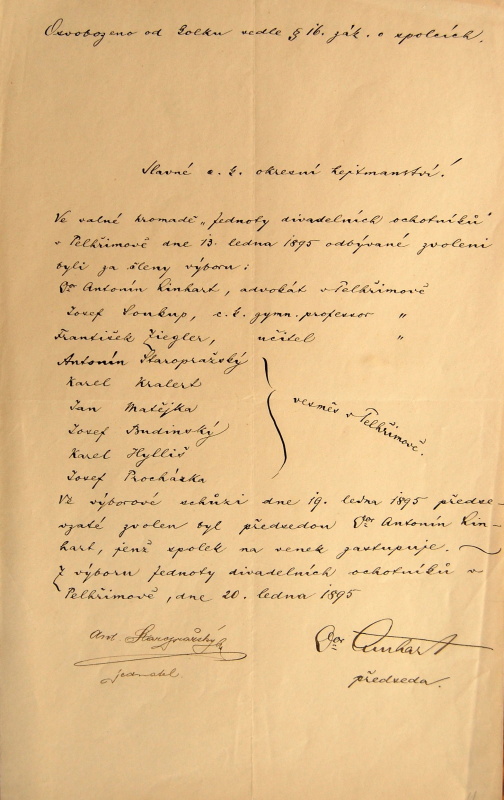 Osvobozeno od kolku vedle § 16. zák. o spolcích.
Slavné c. k. okresní hejtmanství!
Ve valné hromadě „Jednoty divadelních ochotníků“
v Pelhřimově dne 13. ledna 1895 odbývané zvoleni
byli za členy výboru:
Dor Antonín Linhart, advokát v Pelhřimově
Josef Soukup, c. k. gymn. professor "
František Ziegler, učitel "
Antonín Staropražský
Karel Kralert
Jan Matějka
Josef Budinský
Karel Hylliš
Josef Procházka
vesměs v Pelhřimově.
Ve výborové schůzi dne 19. ledna 1895 předse-
vzaté zvolen byl předsedou Dor Antonín Lin-
hart, jenž spolek na venek zastupuje.
Z výboru Jednoty divadelních ochotníků v
Pelhřimově, dne 20. ledna 1895
Ant. Staropražský
jednatel
Dor Linhart
předseda.